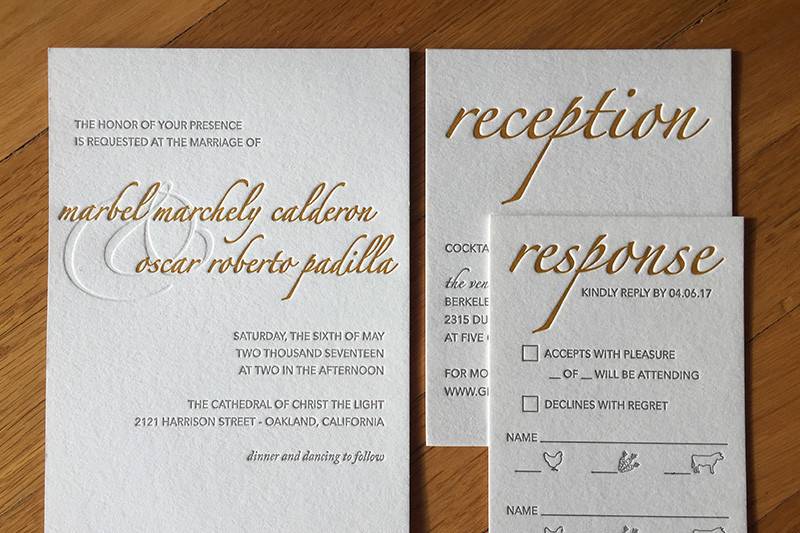 THE HONOR OF YOUR PRESENCE
IS REQUESTED AT THE MARRIAGE OF
marbel marchely calderon
&
oscar roberto padilla
SATURDAY, THE SIXTH OF MAY
TWO THOUSAND SEVENTEEN
AT TWO IN THE AFTERNOON
THE CATHEDRAL OF CHRIST THE LIGHT
2121 HARRISON STREET - OAKLAND, CALIFORNIA
dinner and dancing to follow
reception
the
2315
AT FIVE
FOR
response
KINDLY REPLY BY 04.06.17
ACCEPTS WITH PLEASURE
__ OF __ WILL BE ATTENDING
DECLINES WITH REGRET
NAME
NAME